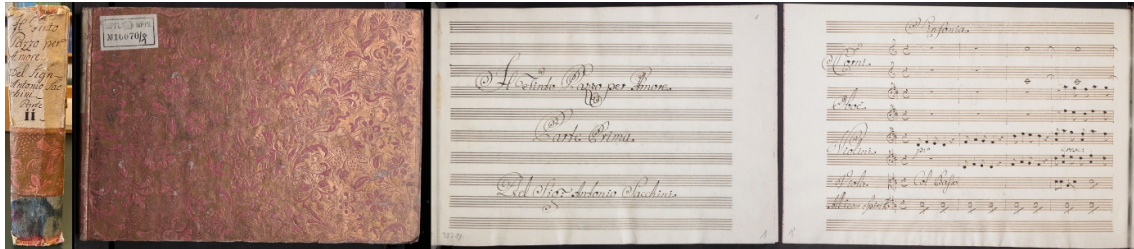 Il Finto
Pazzo per
Amore
Del Sign
Antonio Sac
chini
Parte
ii
Il Finto Pazzo per Amore
Parte Prima
Del Sigr Antonio Sacchini
Sinfonia
Corni
Oboè
Violini
pio
cresc:
Viola
Col Basso